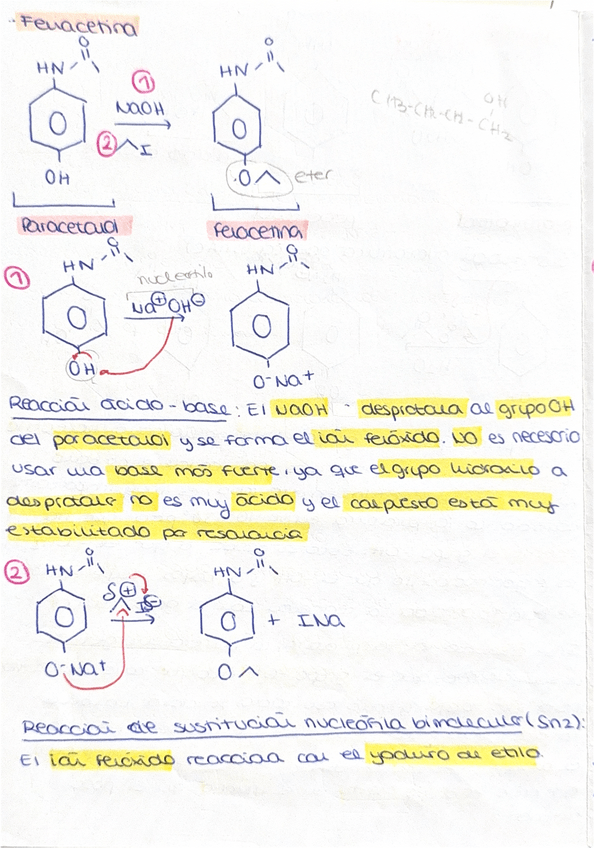 Fenacetina
O
HN
①
NaOH
② I
OH
O
HN
O
eter
OH
CH3-CH2-CH2-CH2
Paracetamol
Fenacetina
①
O
HN
nucleofilo
Na⊕OH⊖
OH
O
HN
O-Na+
Reacción ácido-base: El NaOH desprotona al grupo OH
del paracetamol y se forma el ión fenóxido. No es necesario
usar una base más fuerte, ya que el grupo hidroxilo a
desprotonar no es muy ácido y el compuesto está muy
estabilitado por resonancia.
②
O
HN
δ⊕
I⊖
O-Na+
O
HN
O
+ INa
Reacción de sustitución nucleófila bimolecular (Sn2):
El ión fenóxido reacciona con el yoduro de etilo.